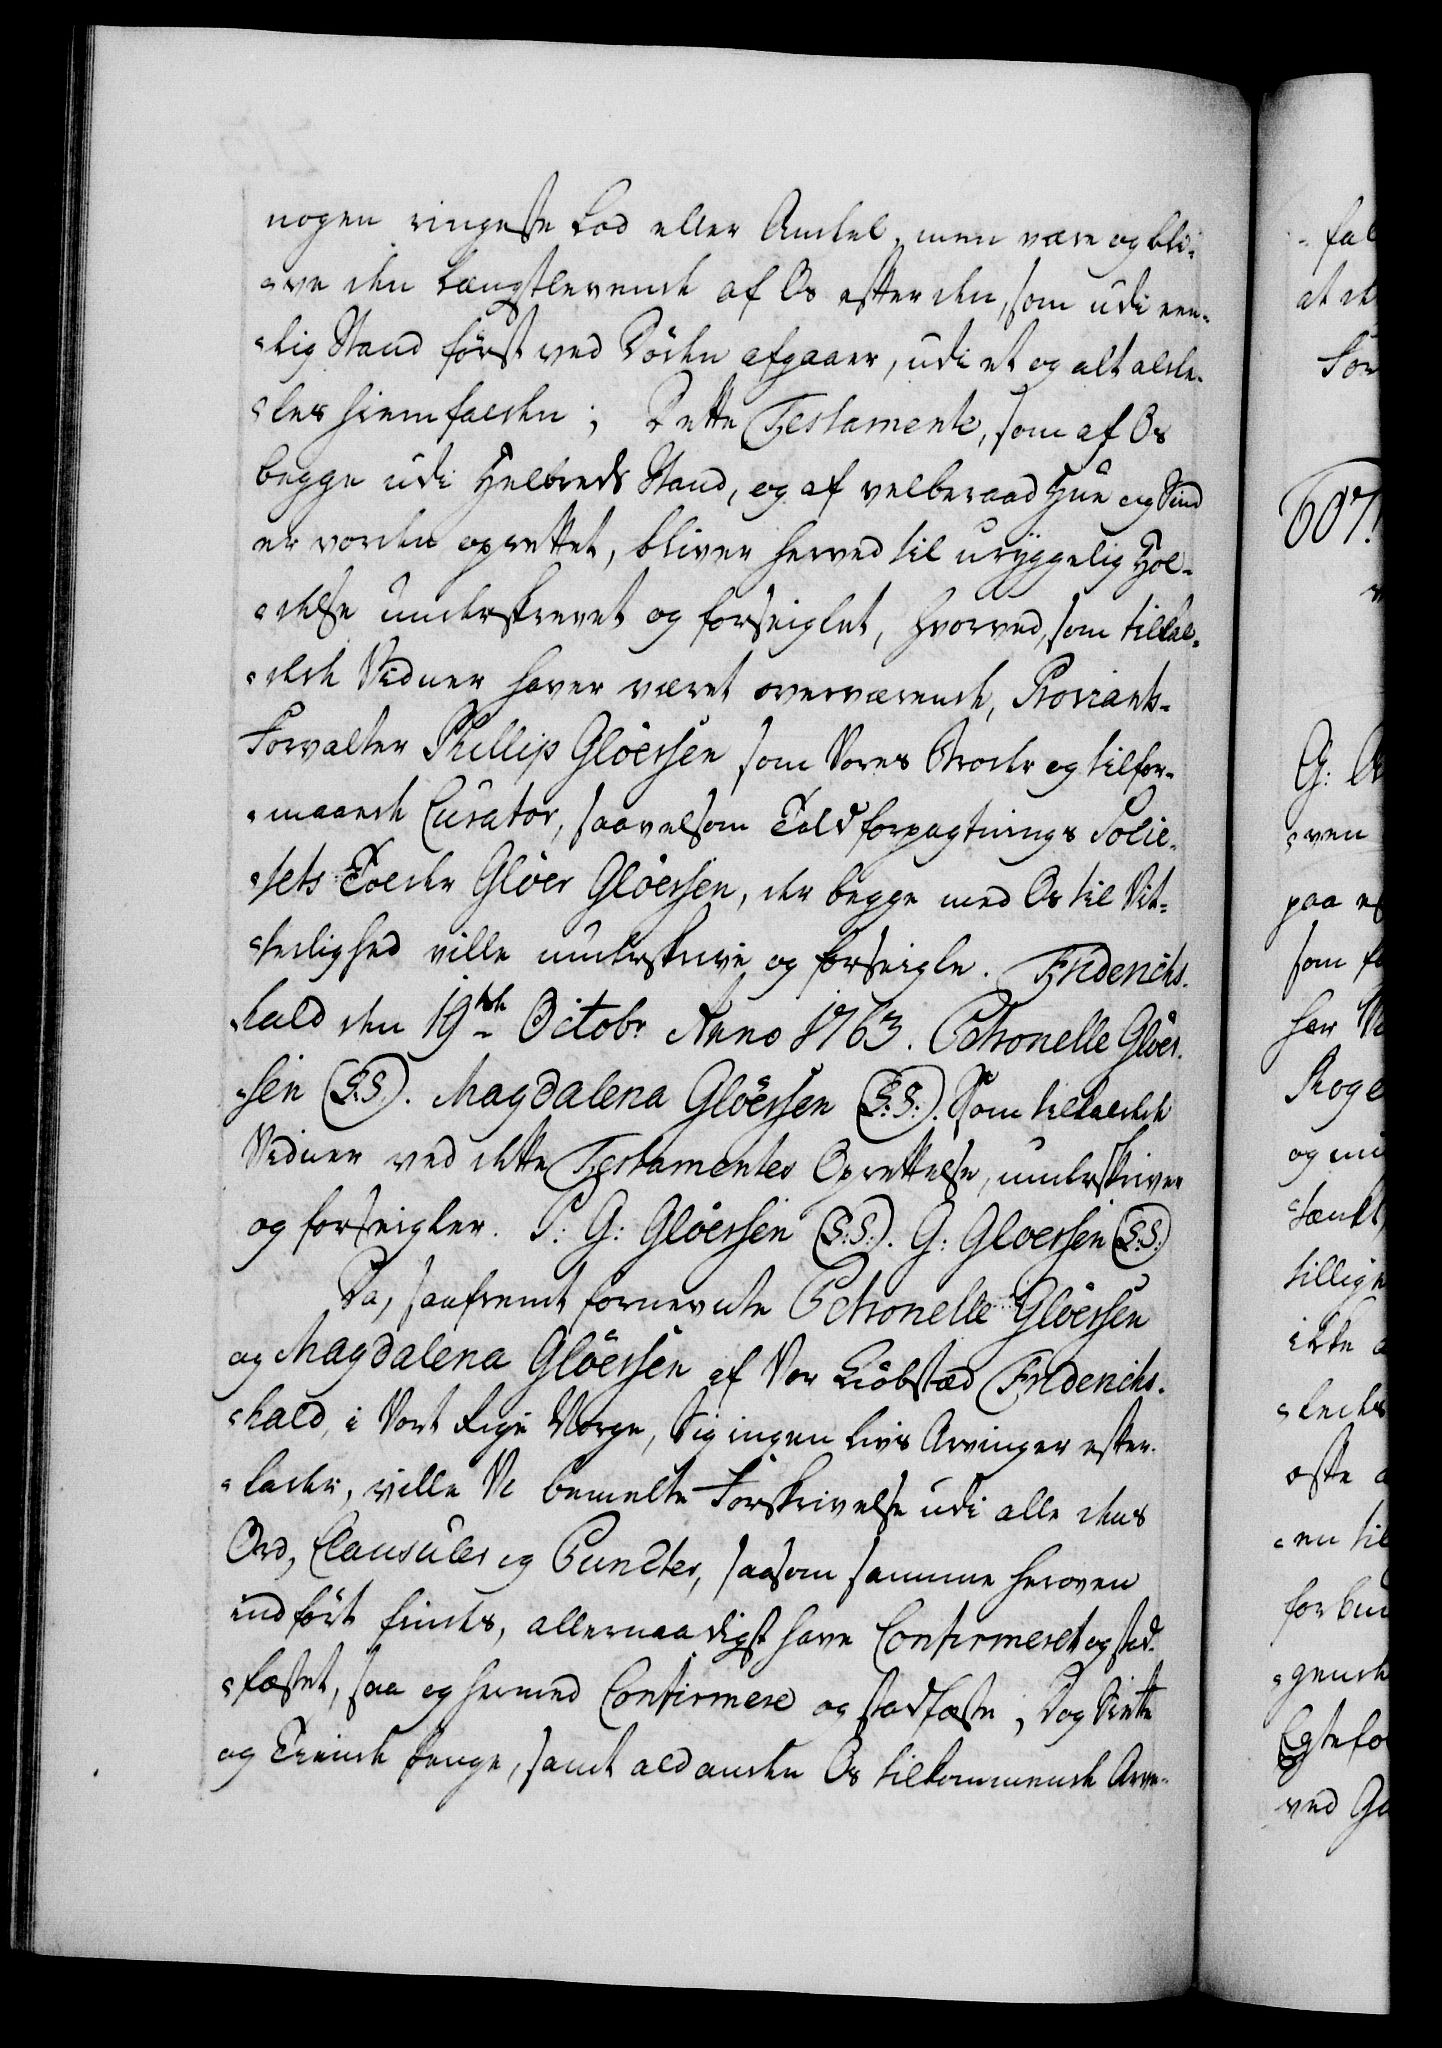 nogen ringeste Lod eller Andeel, men være og bli-
-ve den Længstlevende af Os efter den, som udi een-
-lig Stand først ved Døden afgaaer, udi et og alt alde-
-les hiemfalden; Dette Testamente, som af Os
begge udi Helbreds Stand, og af velberaad Hue og Sind
er vorden oprettet, bliver herved til uryggelig Hol-
-delse underskrevet og forseiglet, hvorved, som tilkal-
-dede Vidner haver været overværende, Proviants-
Forvalter Phillip Gløersen som Vores Broder og tilfor-
-maaede Curator, saavelsom Toldforpagtnings Socie-
-tets Tolder Gløer Gløersen, der begge med Os til Vit-
-terlighed ville underskrive og forseigle. Friderichs-
-hald den 19de Octobr Anno 1763. Petronelle Gløer-
-sen (L.S.). Magdalena Gløersen (L:S:). Som tilkaldede
Vidner ved dette Testamentes Oprettelse, underskriver
og forseigler. P: G: Gløersen (L:S:). G: Gloersen (L:S:)
Da, saafremt fornevnte Petronelle Gløersen
og Magdalena Gløersen af Vor Kiøbstæd Friderichs-
-hald, i Vort Rige Norge, Sig ingen Livs Arvinger efter-
-lader, ville Vi bemelte Forskrivelse udi alle dens
Ord, Clausuler og Puncter, saasom samme heroven
indført findes, allernaadigst have Confirmeret og stad-
-fæstet, saa og hermed Confirmere og stadfæste; Dog Siette
og Tiende Penge, samt ald anden Os tilkommende Arve-
fal
at de
607.
G:
-ven
paa
som
har
og
tillig
ikke
-en til
ved